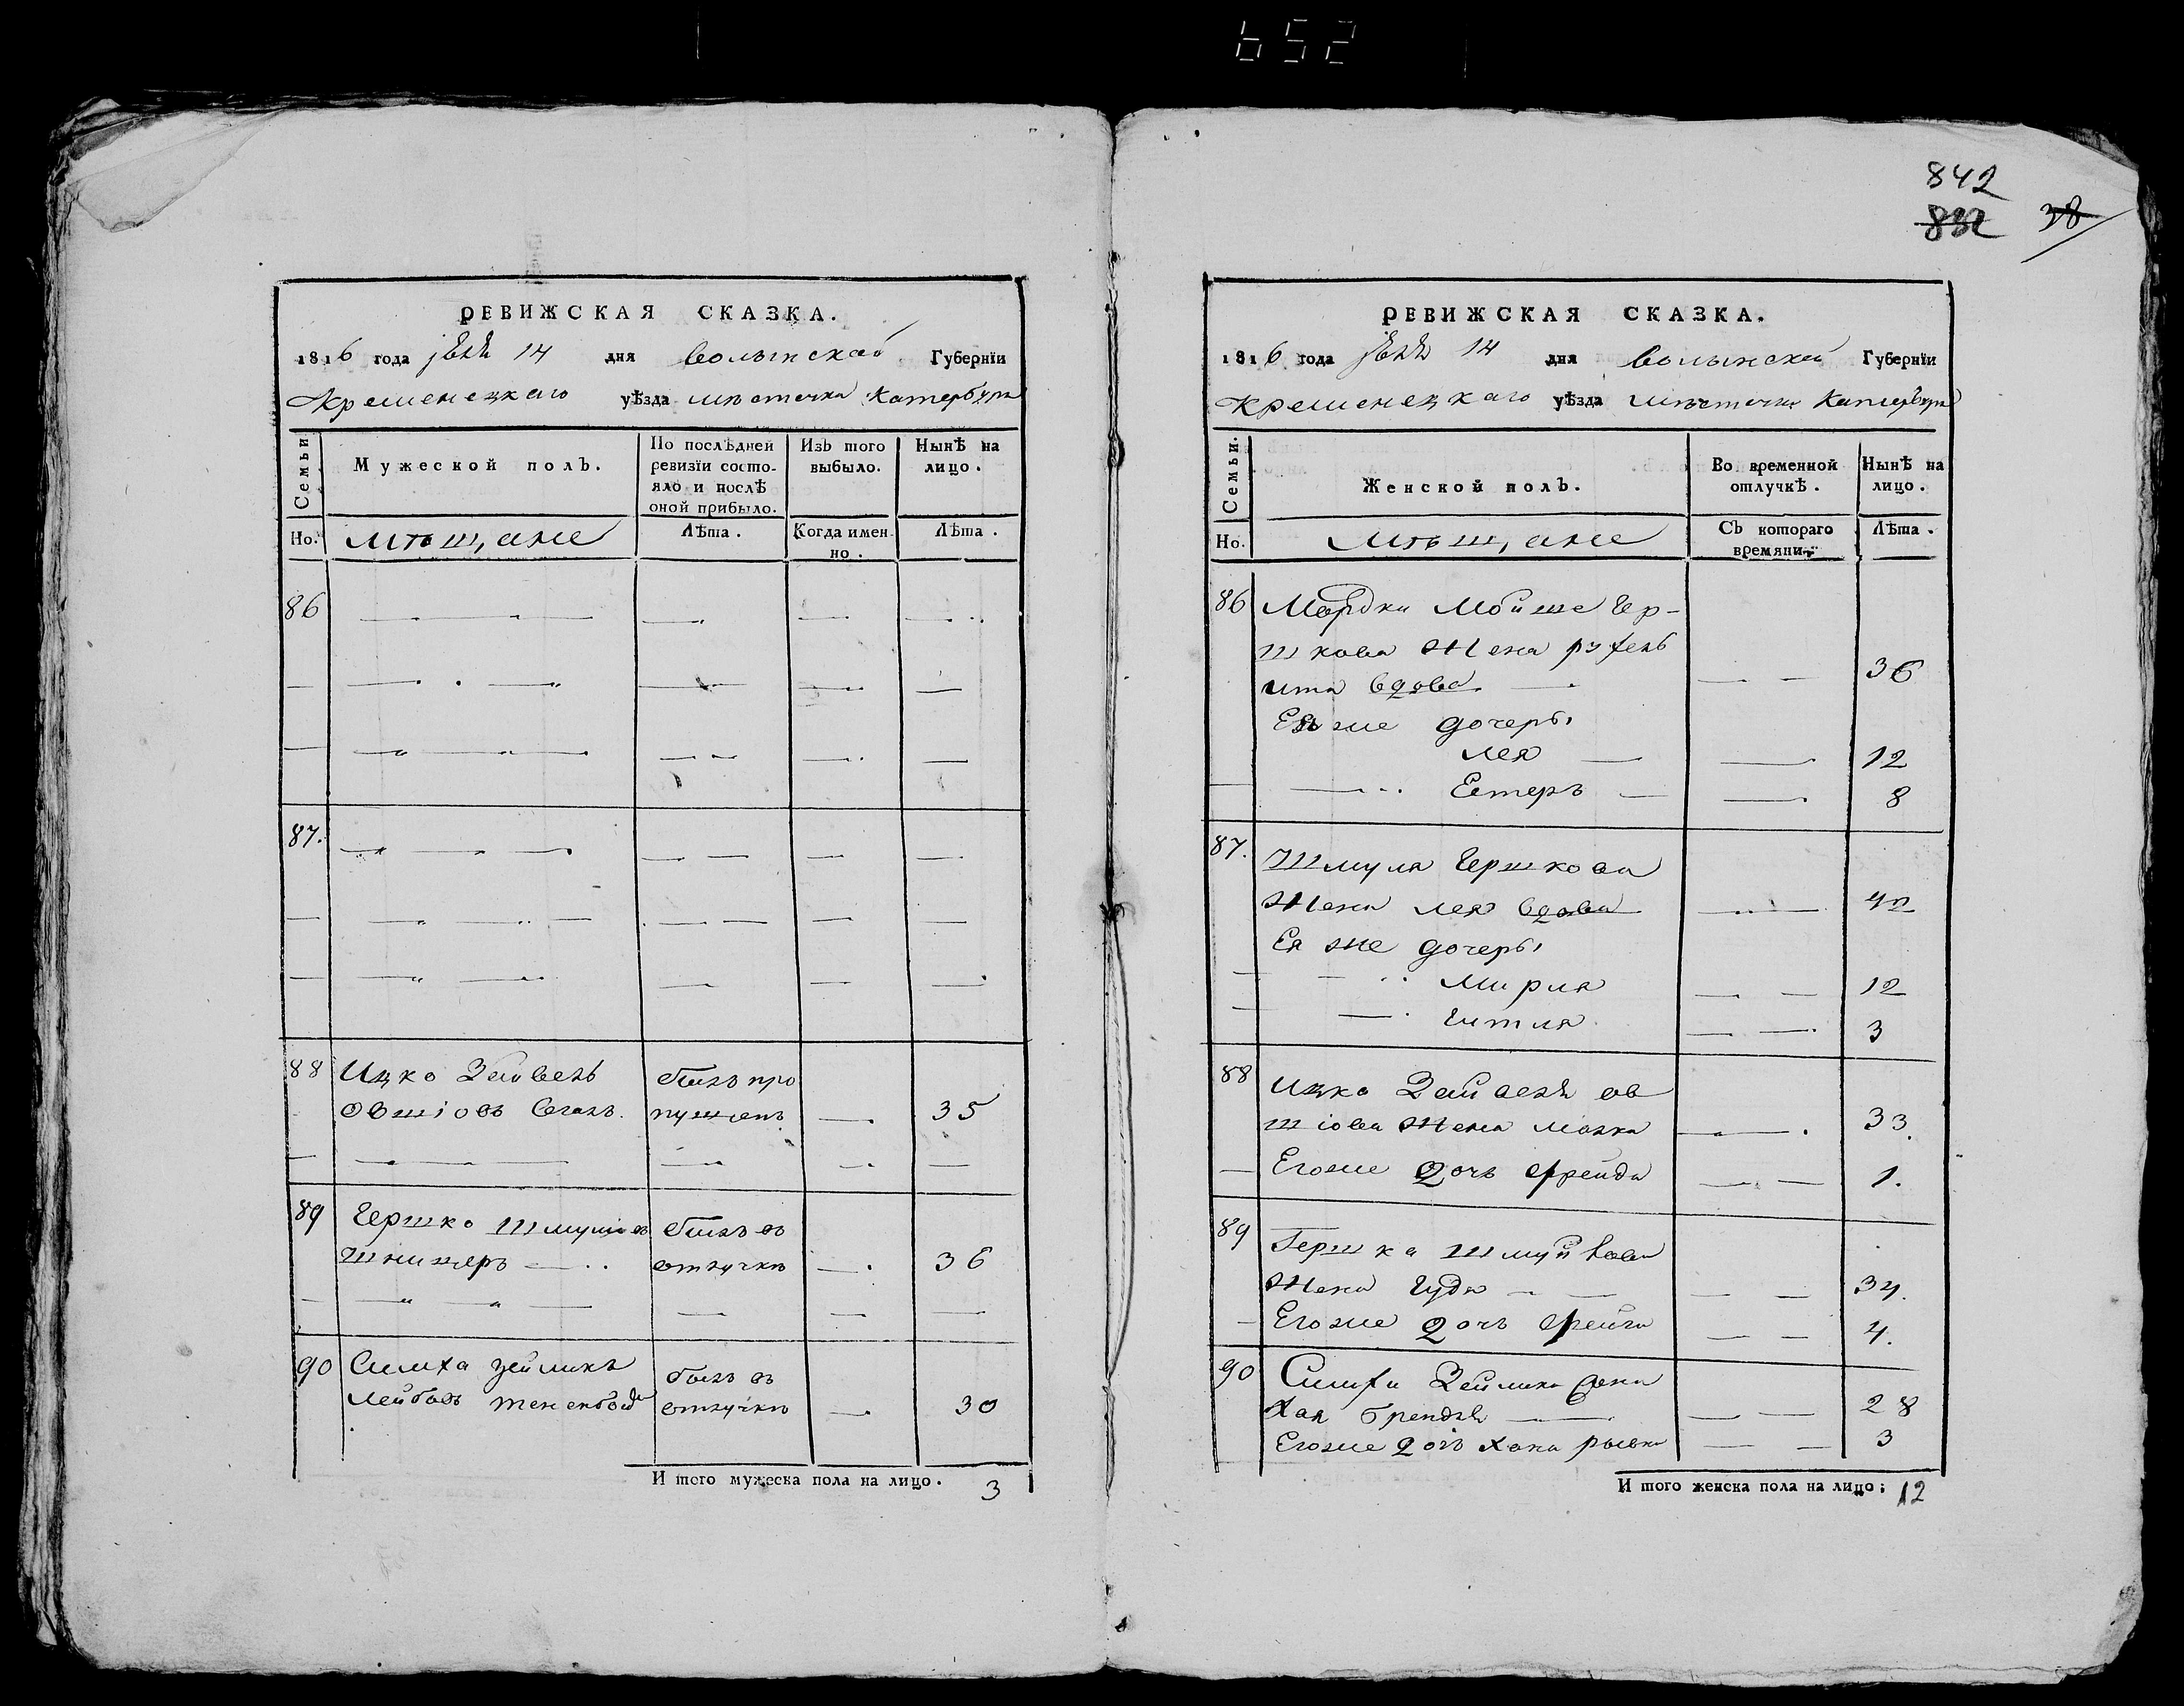 652
842
832 38
РЕВИЖСКАЯ СКАЗКА.
1816 года Іюля 14 дня волынской Губернїи
Кременецкаго уѣзда мѣстечка Катербурга
Семьи
Мужеской полъ.
По послѣдней ревизїи состояло и послѣ оной прибыло.
Изъ того выбыло.
Нынѣ на лицо.
Но.
мѣщане
Лѣта.
Когда именно.
Лѣта.
86
87.
88 Ицко Зейвель былъ про
овшіовъ Сегалъ. пущенъ. 35
89 Гершко Шмуліовъ былъ въ
отлучкѣ 36
90 Симха Зейликъ былъ въ
Лейбовъ отлучкѣ 30
И того мужеска пола на лицо. 3
РЕВИЖСКАЯ СКАЗКА.
1816 года Іюля 14 дня волынской Губернїи
Кременецкаго уѣзда мѣстечка Катербурга
Семьи.
Женской полъ.
Во временной отлучкѣ.
Нынѣ на лицо.
Но.
мѣщане
Съ котораго времяни.
Лѣта.
86 Мордки Мойше Гер-
шкова жена Рухель
ита вдова 36
Ея же дочеры
Лея 12
Естеръ 8
87. Шмуля Гершкова
жена Лея вдова 42
Ея же дочеры
Мирля 12
Гитля 3
88 Ицка Зейвеля ов
шіова жена Малка 33.
Егоже дочь Фрейда 1.
89 Гершка Шмуйлова
жена Гудя 34.
Егоже дочь Фейга 4.
90 Симхи Зейлика жена
Хая Брендля 28
Егоже дочь Хана Рывка 3
И того женска пола на лицо; 12